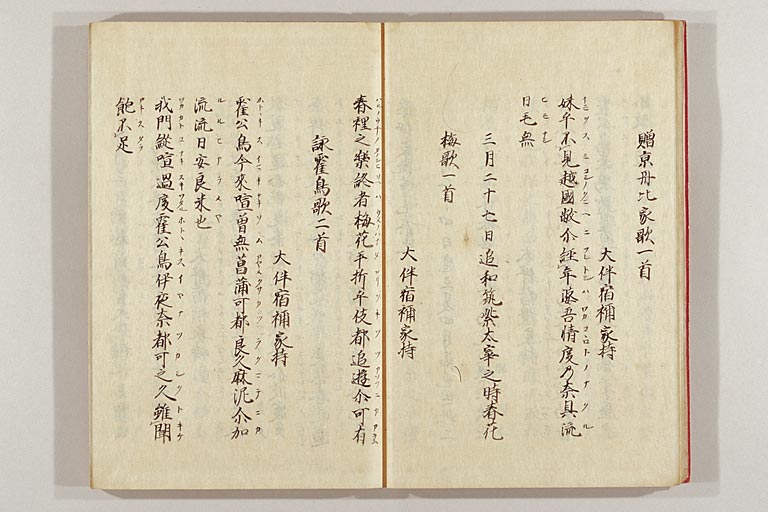 贈京丹比家歌一首
大伴宿祢家持
妹乎不見越國敝尓經年婆吾情度乃奈具流
日毛無
三月二十七日追和筑紫太宰之時春花
梅歌一首
大伴宿祢家持
春裡之樂終者梅花手折乎伎都追遊尓可有
詠霍鳥歌二首
大伴宿祢家持
霍公鳥今來喧曽無菖蒲可都良久麻泥尓加
流流日安良米也
我門從喧過度霍公鳥伊夜奈都可之久雖聞
飽不足